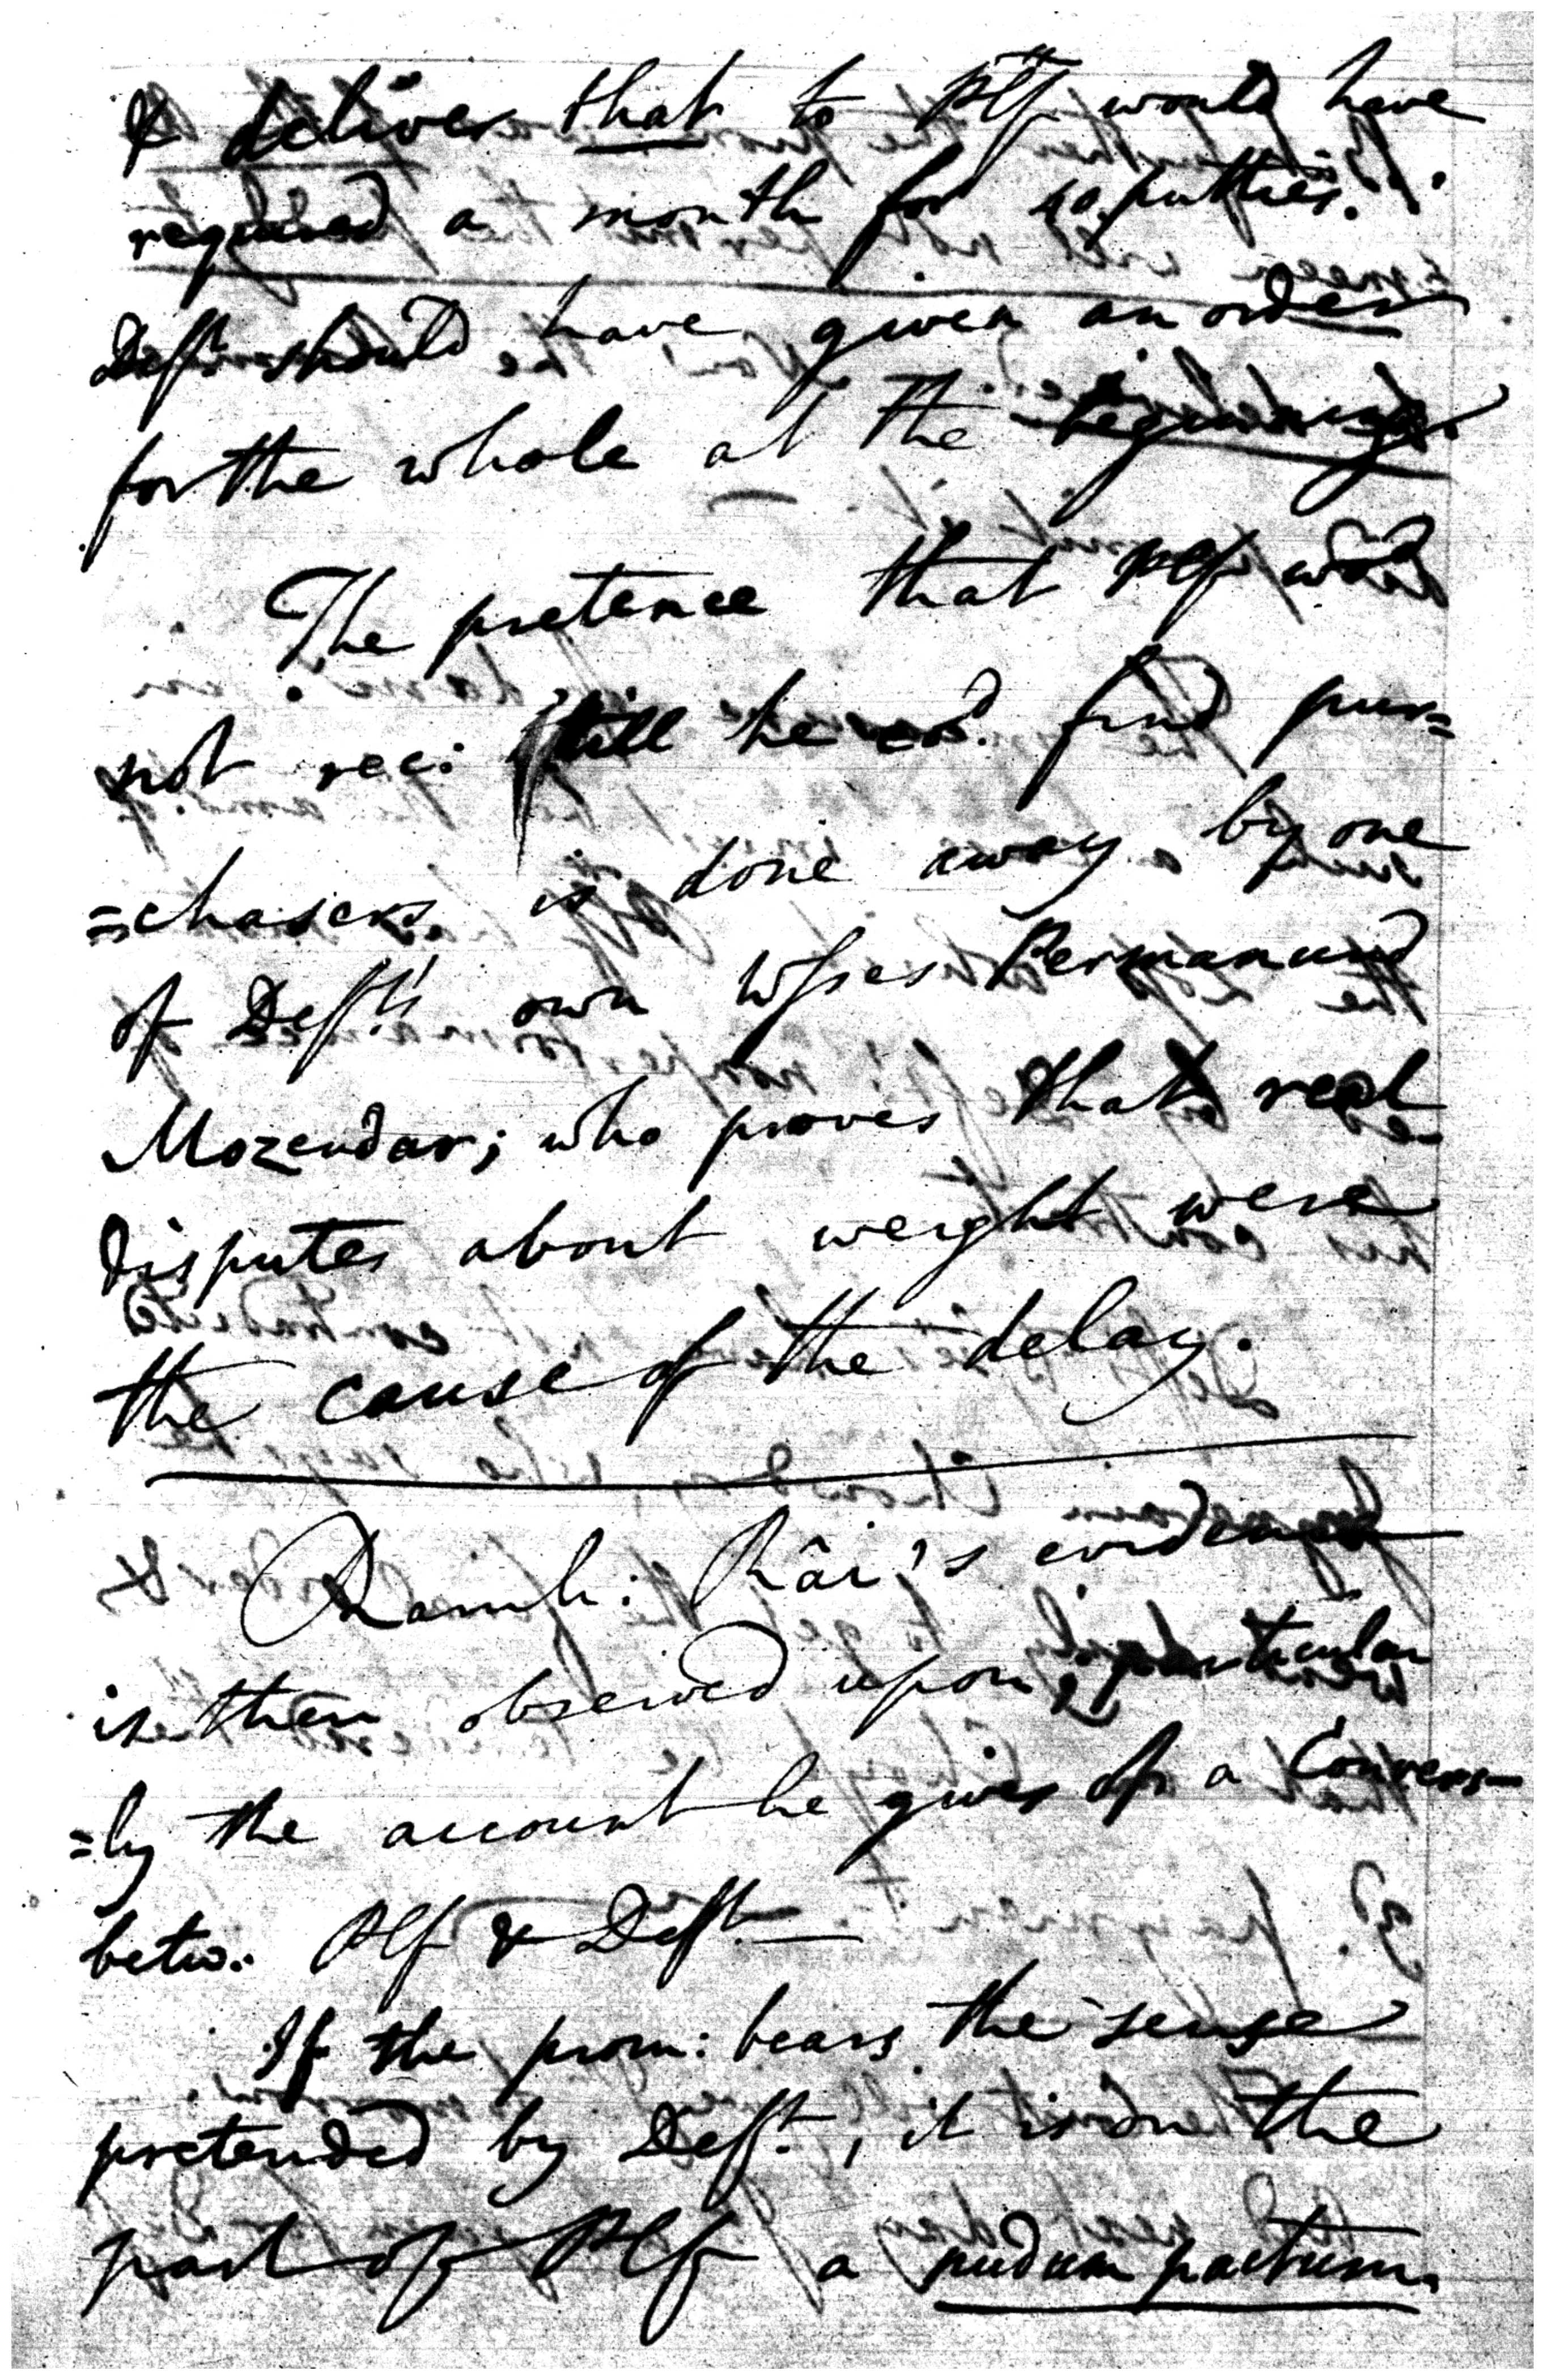 & deliver that to Plf would have
required a month for 40 putties.
Deft. should have given an order
for the whole at the beginning.
The pretence that Plf wod
not rec: till he cod. find pur=
=chasers, is done away by one
of Deft.'s own Wsses Permanund
Mozendar; who proves that real
disputes about weight were
the cause of the delay.
Ramh: Râi's evidence
is then observed upon, particular
=ly the account he gives of a Convers—
betw: Plf & Deft.—
If the prom: bears the sense
pretended by Deft., it is on the
part of Plf a nudum pactum.